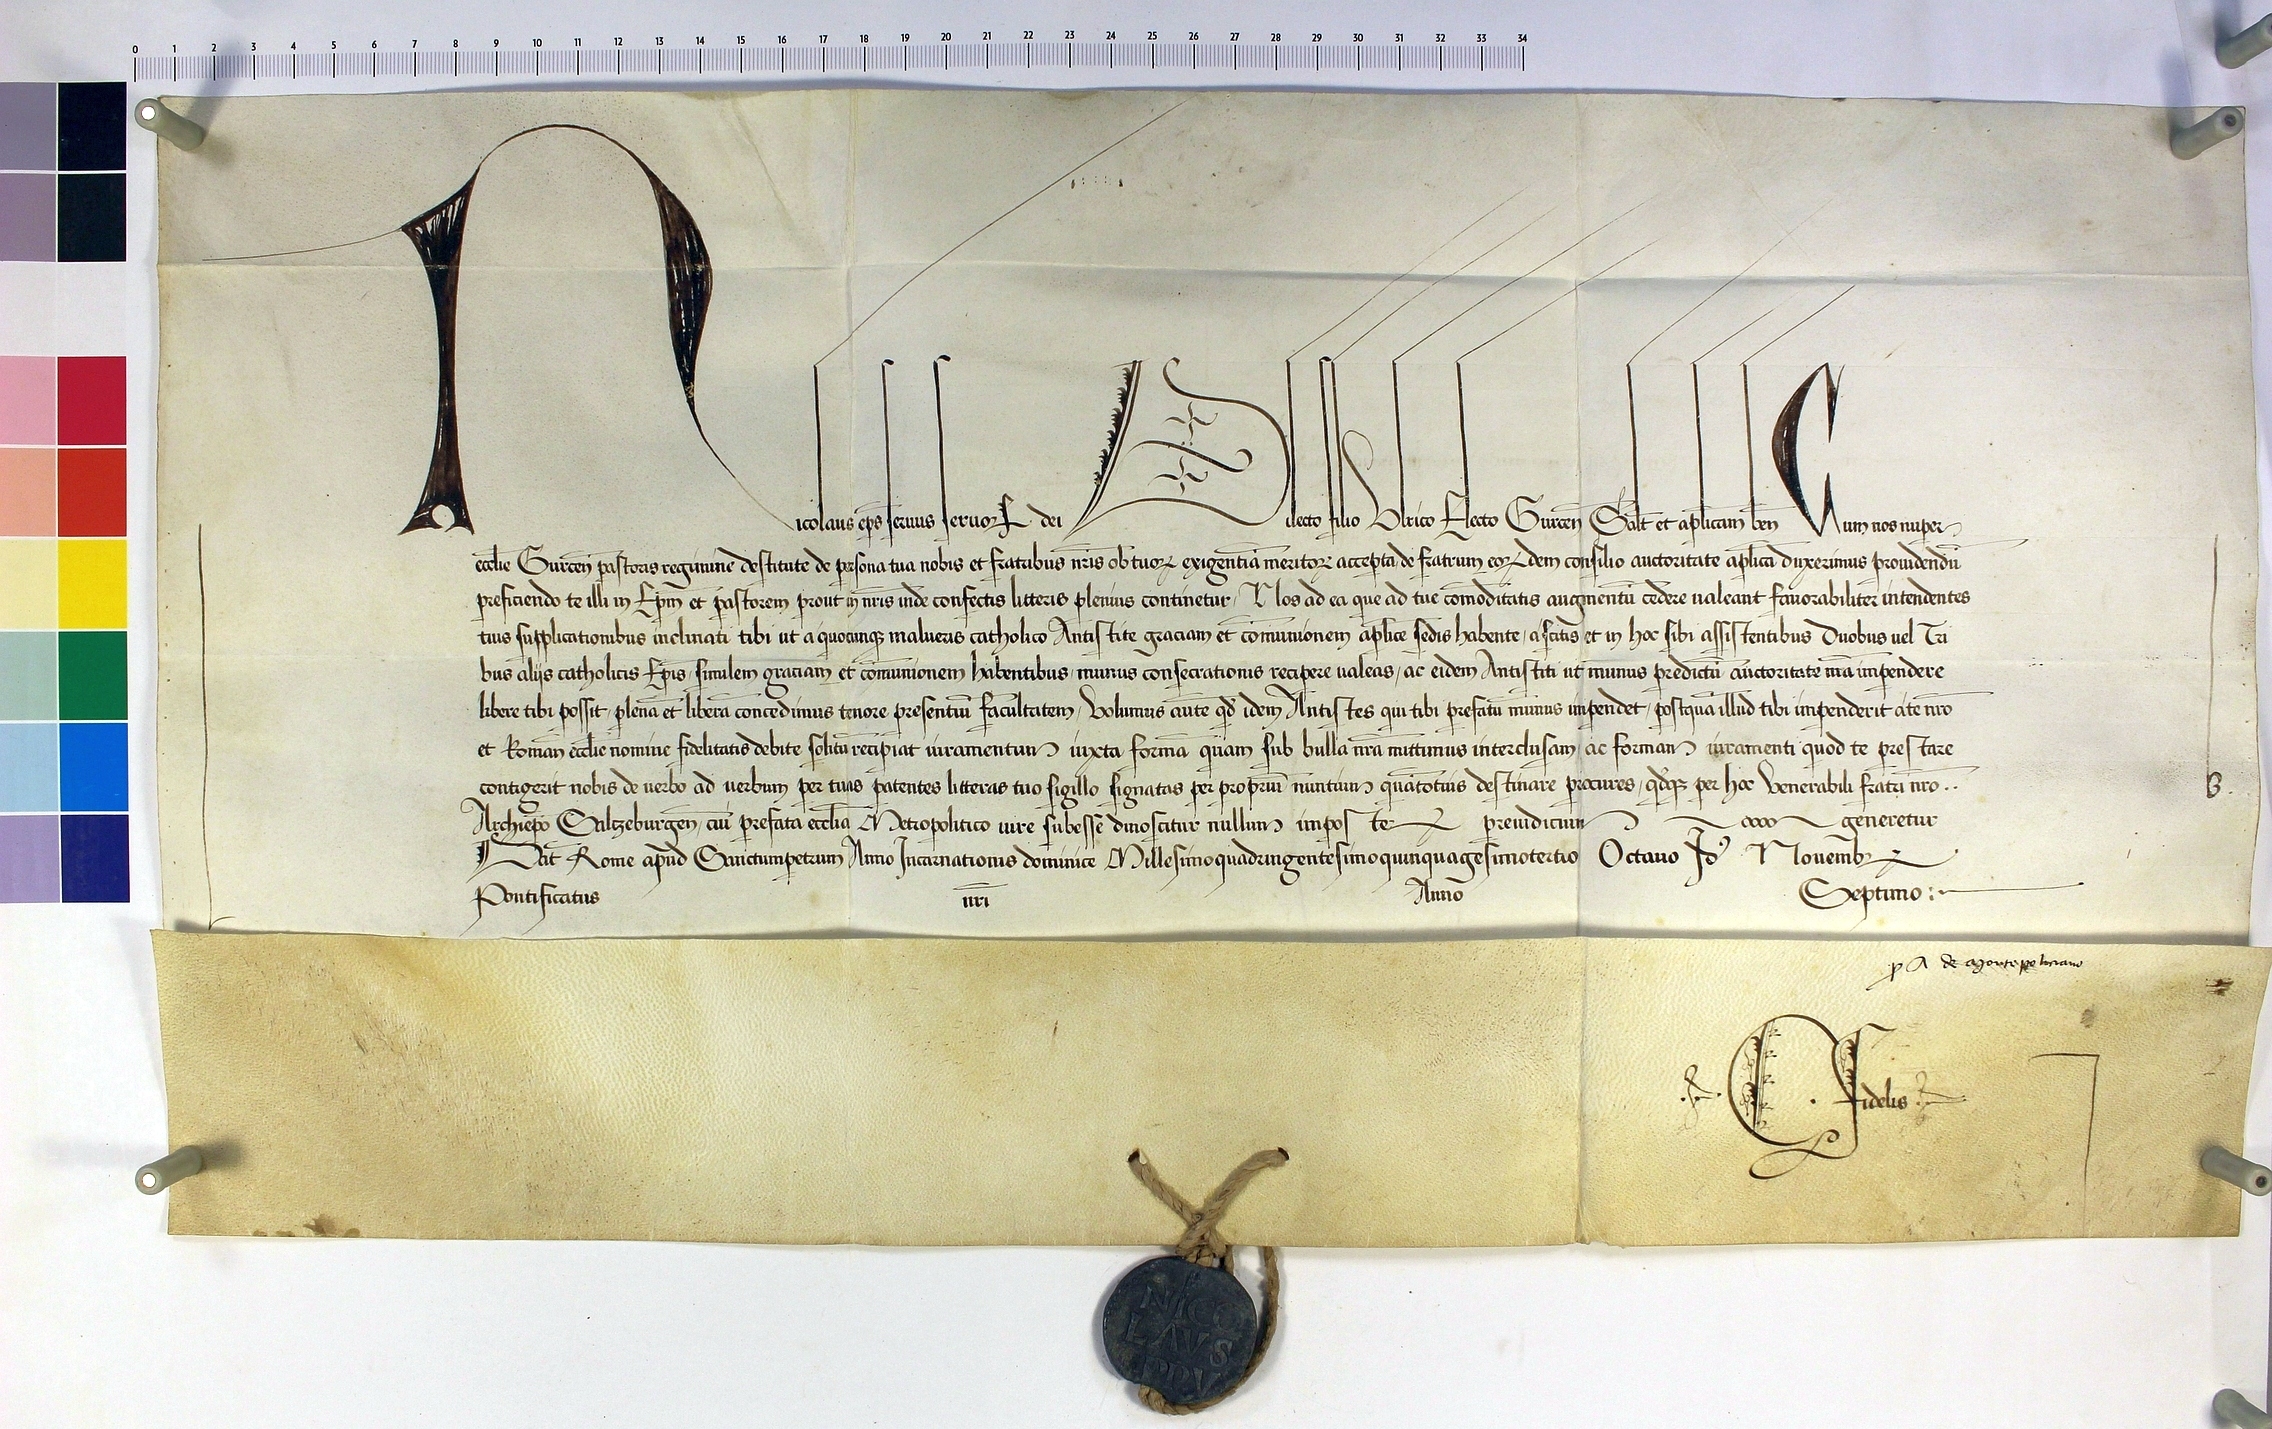 0 1 2 3 4 5 6 7 8 9 10 11 12 13 14 15 16 17 18 19 20 21 22 23 24 25 26 27 28 29 30 31 32 33 34
Nicolaus ep̄s seruus seruoꝝ dei Dilecto filio Vlrico Electo Gurcen̄ Salt̄ et ap̄licam ben̄ Cum nos nuper
eccl̄ie Gurcen̄ pastoris regimine destitute de persona tua nobis et fratribus nr̄is ob tuoꝝ exigentiā meritoꝝ accepta, de fratrum eoꝝdem consilio auctoritate ap̄lica duxerimus prouidendū
preficiendo te illi in Ep̄m et pastorem prout in nr̄is inde confectis litteris plenius continetur, Nos ad ea que ad tue cōmoditatis augmentū cedere ualeant fauorabiliter intendentes
tuis supplicationibus inclinati tibi ut a quocunqꝫ malueris catholico Antistite graciam et cōmunionem ap̄lice sedis habente, ascitis et in hoc sibi assistentibus Duobus uel Tri
bus aliis catholicis Ep̄is, similem graciam et cōmunionem habentibus, munus consecrationis recipere ualeas, ac eidem Antistiti ut munus predictū auctoritate nr̄a impendere
libere tibi possit, plenā et liberā concedimus tenore presentiū facultatem, Volumus aūte qd̄ idem Antistes qui tibi prefatū munus impendet, postquā illud tibi impenderit a te nr̄o
et Roman̄ eccl̄ie nomine fidelitatis debite solitū recipiat iuramentum iuxta formā quam sub bulla nr̄a mittimus interclusam, ac formam iuramenti quod te prestare
contigerit nobis de uerbo ad uerbum per tuas patentes litteras tuo sigillo signatas per propriū nuntium quātotius destinare procures, qd̄qꝫ per hoc Venerabili fratri nr̄o ..
Archiep̄o Saltzeburgen̄, cui prefata eccl̄ia Metropolitico iure subesse dinoscitur nullum imposterū preiudicium generetur
Dat̄ Rome apud Sanctumpetrum Anno Incarnationis dominice Millesimoquadringentesimoquinquagesimotertio Octauo Id̄ Nouembꝝ
Pontificatus nr̄i Anno Septimo :
B.
p A de montepoliciano
C . Fidelis
NICO
LAVS
PP V